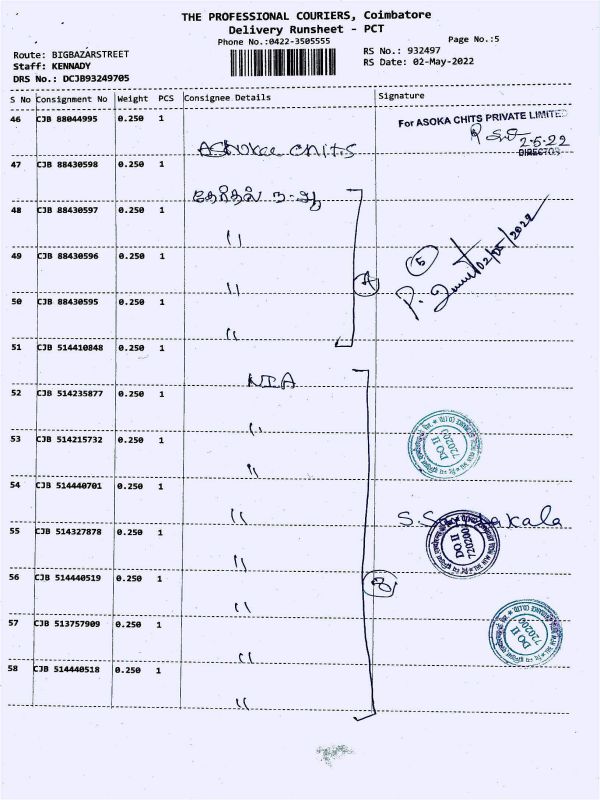 THE PROFESSIONAL COURIERS, Coimbatore
Delivery Runsheet - PCT
Phone No.:0422-3505555
Page No.:5
Route: BIGBAZARSTREET
RS No.: 932497
Staff: KENNADY
RS Date: 02-May-2022
DRS No.: DCJB93249705
S No Consignment No Weight PCS Consignee Details Signature
46 CJB 88044995 0.250 1
For ASOKA CHITS PRIVATE LIMITED
2-5-22
DIRECTOR
Ashoka chits
47 CJB 88430598 0.250 1
48 CJB 88430597 0.250 1
"
49 CJB 88430596 0.250 1
5
02/05/2022
"
50 CJB 88430595 0.250 1
"
51 CJB 514410848 0.250 1
NIA
52 CJB 514235877 0.250 1
"
53 CJB 514215732 0.250 1
DO II
720200
"
54 CJB 514440701 0.250 1
"
55 CJB 514327878 0.250 1
DO II
720200
"
56 CJB 514440519 0.250 1
8
"
57 CJB 513757909 0.250 1
DO II
720200
"
58 CJB 514440518 0.250 1
"